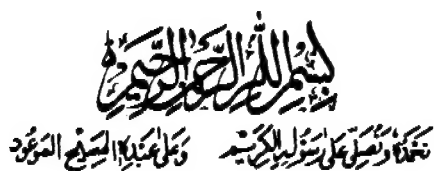 بِسْمِ اللّٰهِ الرَّحْمٰنِ الرَّحِيْمِ
نَحْمَدُهٗ وَنُصَلِّیْ عَلٰی رَسُوْلِهِ الْكَرِيْمِ وَعَلٰی عَبْدِهِ الْمَسِيْحِ الْمَوْعُوْدِ